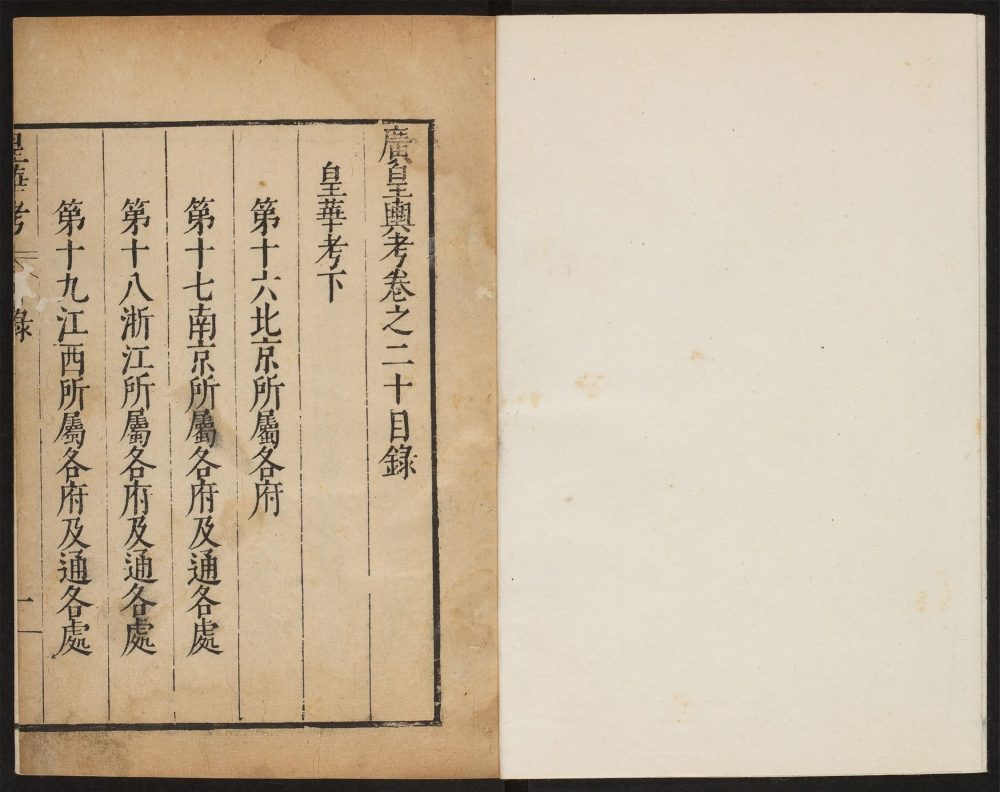 廣皇輿考卷之二十目錄
皇華考下
第十六北京所屬各府
第十七南京所屬各府及通各處
第十八浙江所屬各府及通各處
第十九江西所屬各府及通各處
皇華考 錄 一